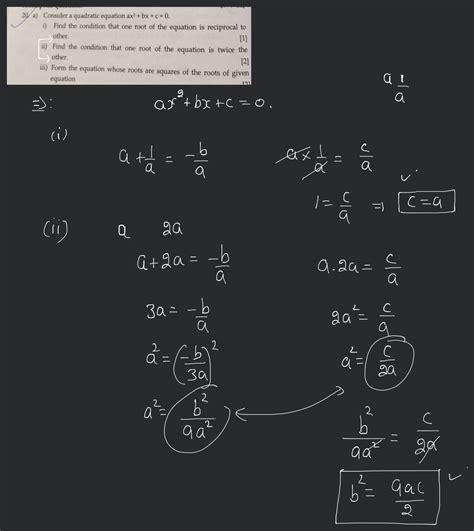 20. a) Consider a quadratic equation ax² + bx + c = 0.
i) Find the condition that one root of the equation is reciprocal to
other. [1]
ii) Find the condition that one root of the equation is twice the
other. [2]
iii) Form the equation whose roots are squares of the roots of given
equation
a 1/a
=>: ax² + bx + c = 0.
(i)
a + 1/a = -b/a
a × 1/a = c/a
1 = c/a => c = a
(ii) a 2a
a + 2a = -b/a
3a = -b/a
a² = (-b/3a)²
a² = b²/9a²
a.2a = c/a
2a² = c/a
a² = c/2a
b²/9a² = c/2a
b² = 9ac/2